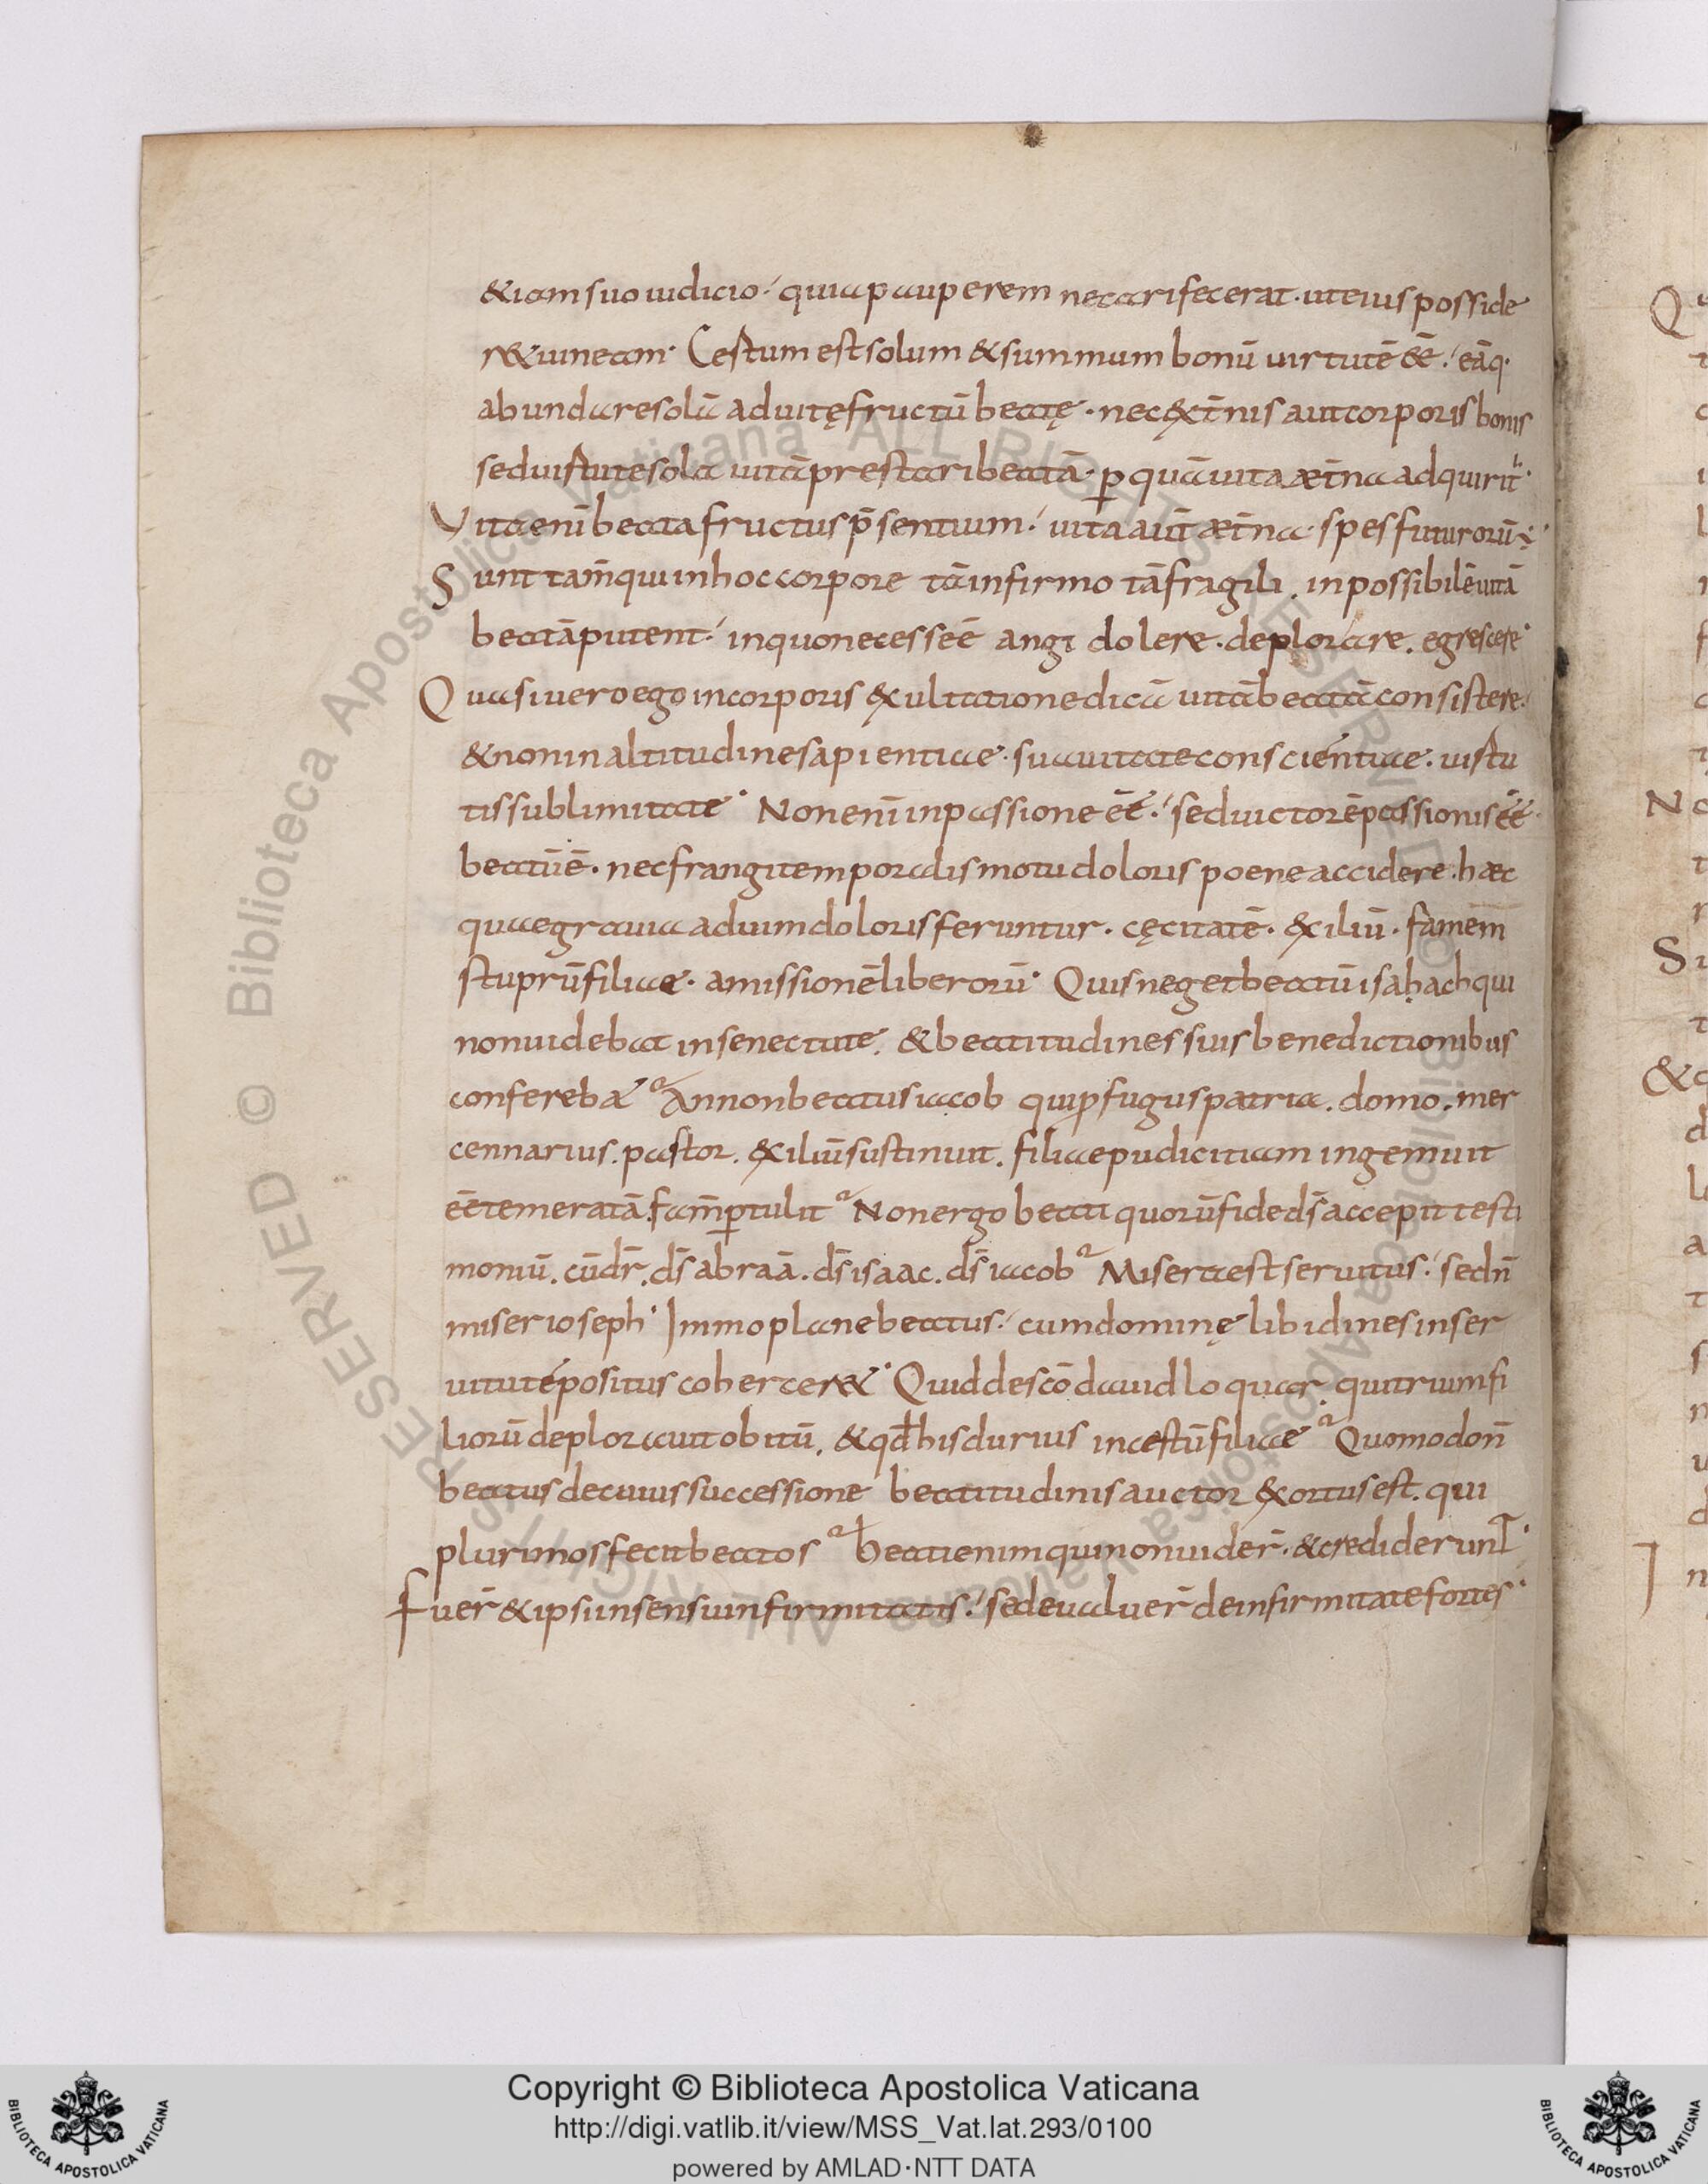 &iam suo iudicio·́ quia pauperem necari fecerat· ut eius posside
r& uineam· Certum est solum & summum bonū uirtutē eē·́ eāq·
abundare solā ad uitę fructū beatę· nec ext̄nis aut corporis bonis
sed uirtute sola uitā prestari beatā· ꝑ quā uita æt̄na adquirit᷑·
Vita eni beata fructus p̄sentium·́ uita aut̄ æt̄na· spes futurorū·
Sunt tam̄ qui in hoc corpore tā infirmo tā fragili. inpossibilē uitā
beatā putent·́ in quo necesse ē angi dolere· deplorare. egrescere·
Quasi uero ego in corporis exultatione dicā uitā beatā consistere·
& non in altitudine sapientiae· suauitate conscientiae· uirtu
tis sublimitate· Non enī in passione eē·́ sed uictorē passionis eē
beatū ē· nec frangi temporalis motu doloris poene accidere· hæc
quae grauia ad uim doloris feruntur· cęcitatē· exiliū· famem
stuprū filiae· amissionē liberorū· Quis neget beatū isahach qui
non uidebat in senectute. & beatitudines suis benedictionibus
confereb& An non beatus iacob qui ꝓfugus patria. domo. mer
cennarius. pastor. exiliū sustinuit. filiae pudicitiam ingemuit
eē temeratā. fam̄ ꝑtulit Non ergo beati quorū fide ds̄ accepit testi
moniū. cū dr̄. ds̄ abraā. ds̄ isaac. ds̄ iacob Misera est seruitus·́ sed n̄
miser ioseph· Immo plane beatus·́ cum dominę libidines in ser
uitute positus cohercer&· Quid de scō dauid loquar. qui trium fi
liorū deplorauit obitū. & qđ his durius incestū filiae Quomodo n̄
beatus de cuius successione beatitudinis auctor exortus est. qui
plurimos fecit beatos beati enim qui non uider̄· & crediderunt·
Fuer̄ & ipsi in sensu infirmitatis·́ sed eualuer̄ de infirmitate fortes·
Copyright © Biblioteca Apostolica Vaticana
http://digi.vatlib.it/view/MSS_Vat.lat.293/0100
powered by AMLAD·NTT DATA